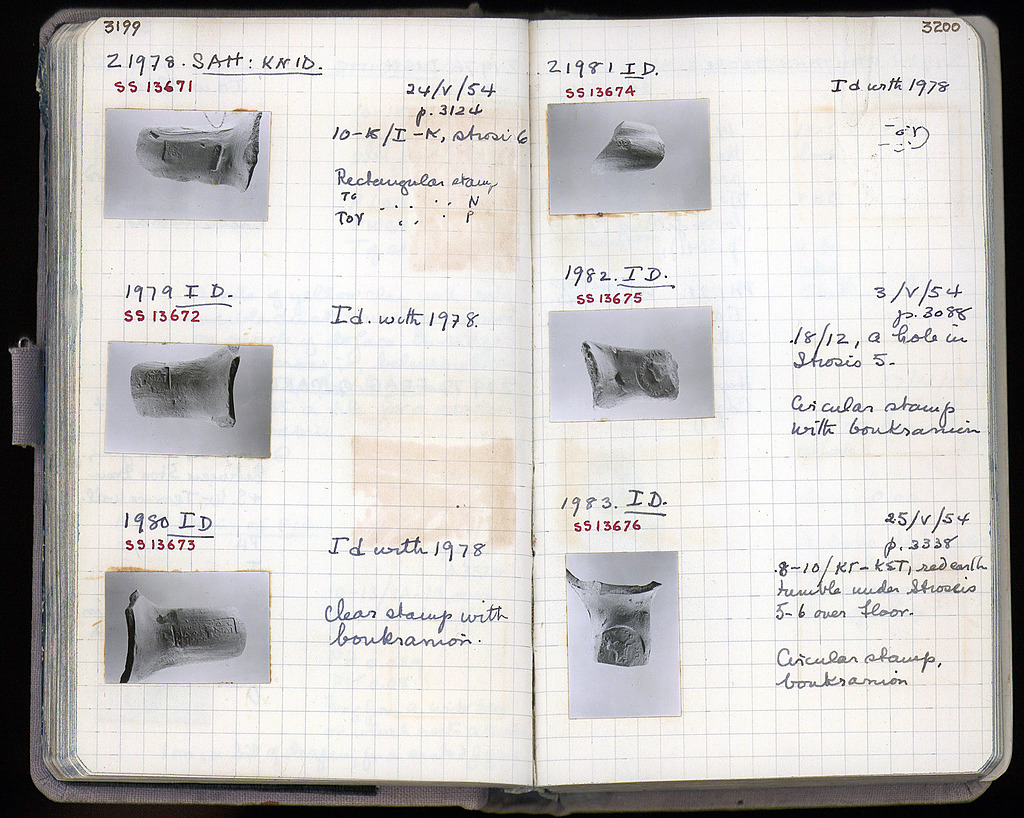 3199
Z1978. SAH: KNID.
SS 13671
24/V/54
p. 3124
Rectangular stamp
N
P
1979 I D.
SS 13672
Id. with 1978.
1980 ID
SS 13673
Id with 1978
Clear stamp with
boukranion.
3200
Z1981 ID.
SS 13674
Id with 1978
1982. ID.
SS 13675
3/V/54
p. 3088
18/12, a hole in
Strosis 5.
Circular stamp
with boukranion
1983. ID.
SS 13676
25/V/54
p. 3338
red earth
tumble under Strosis
5-6 over floor.
Circular stamp,
boukranion